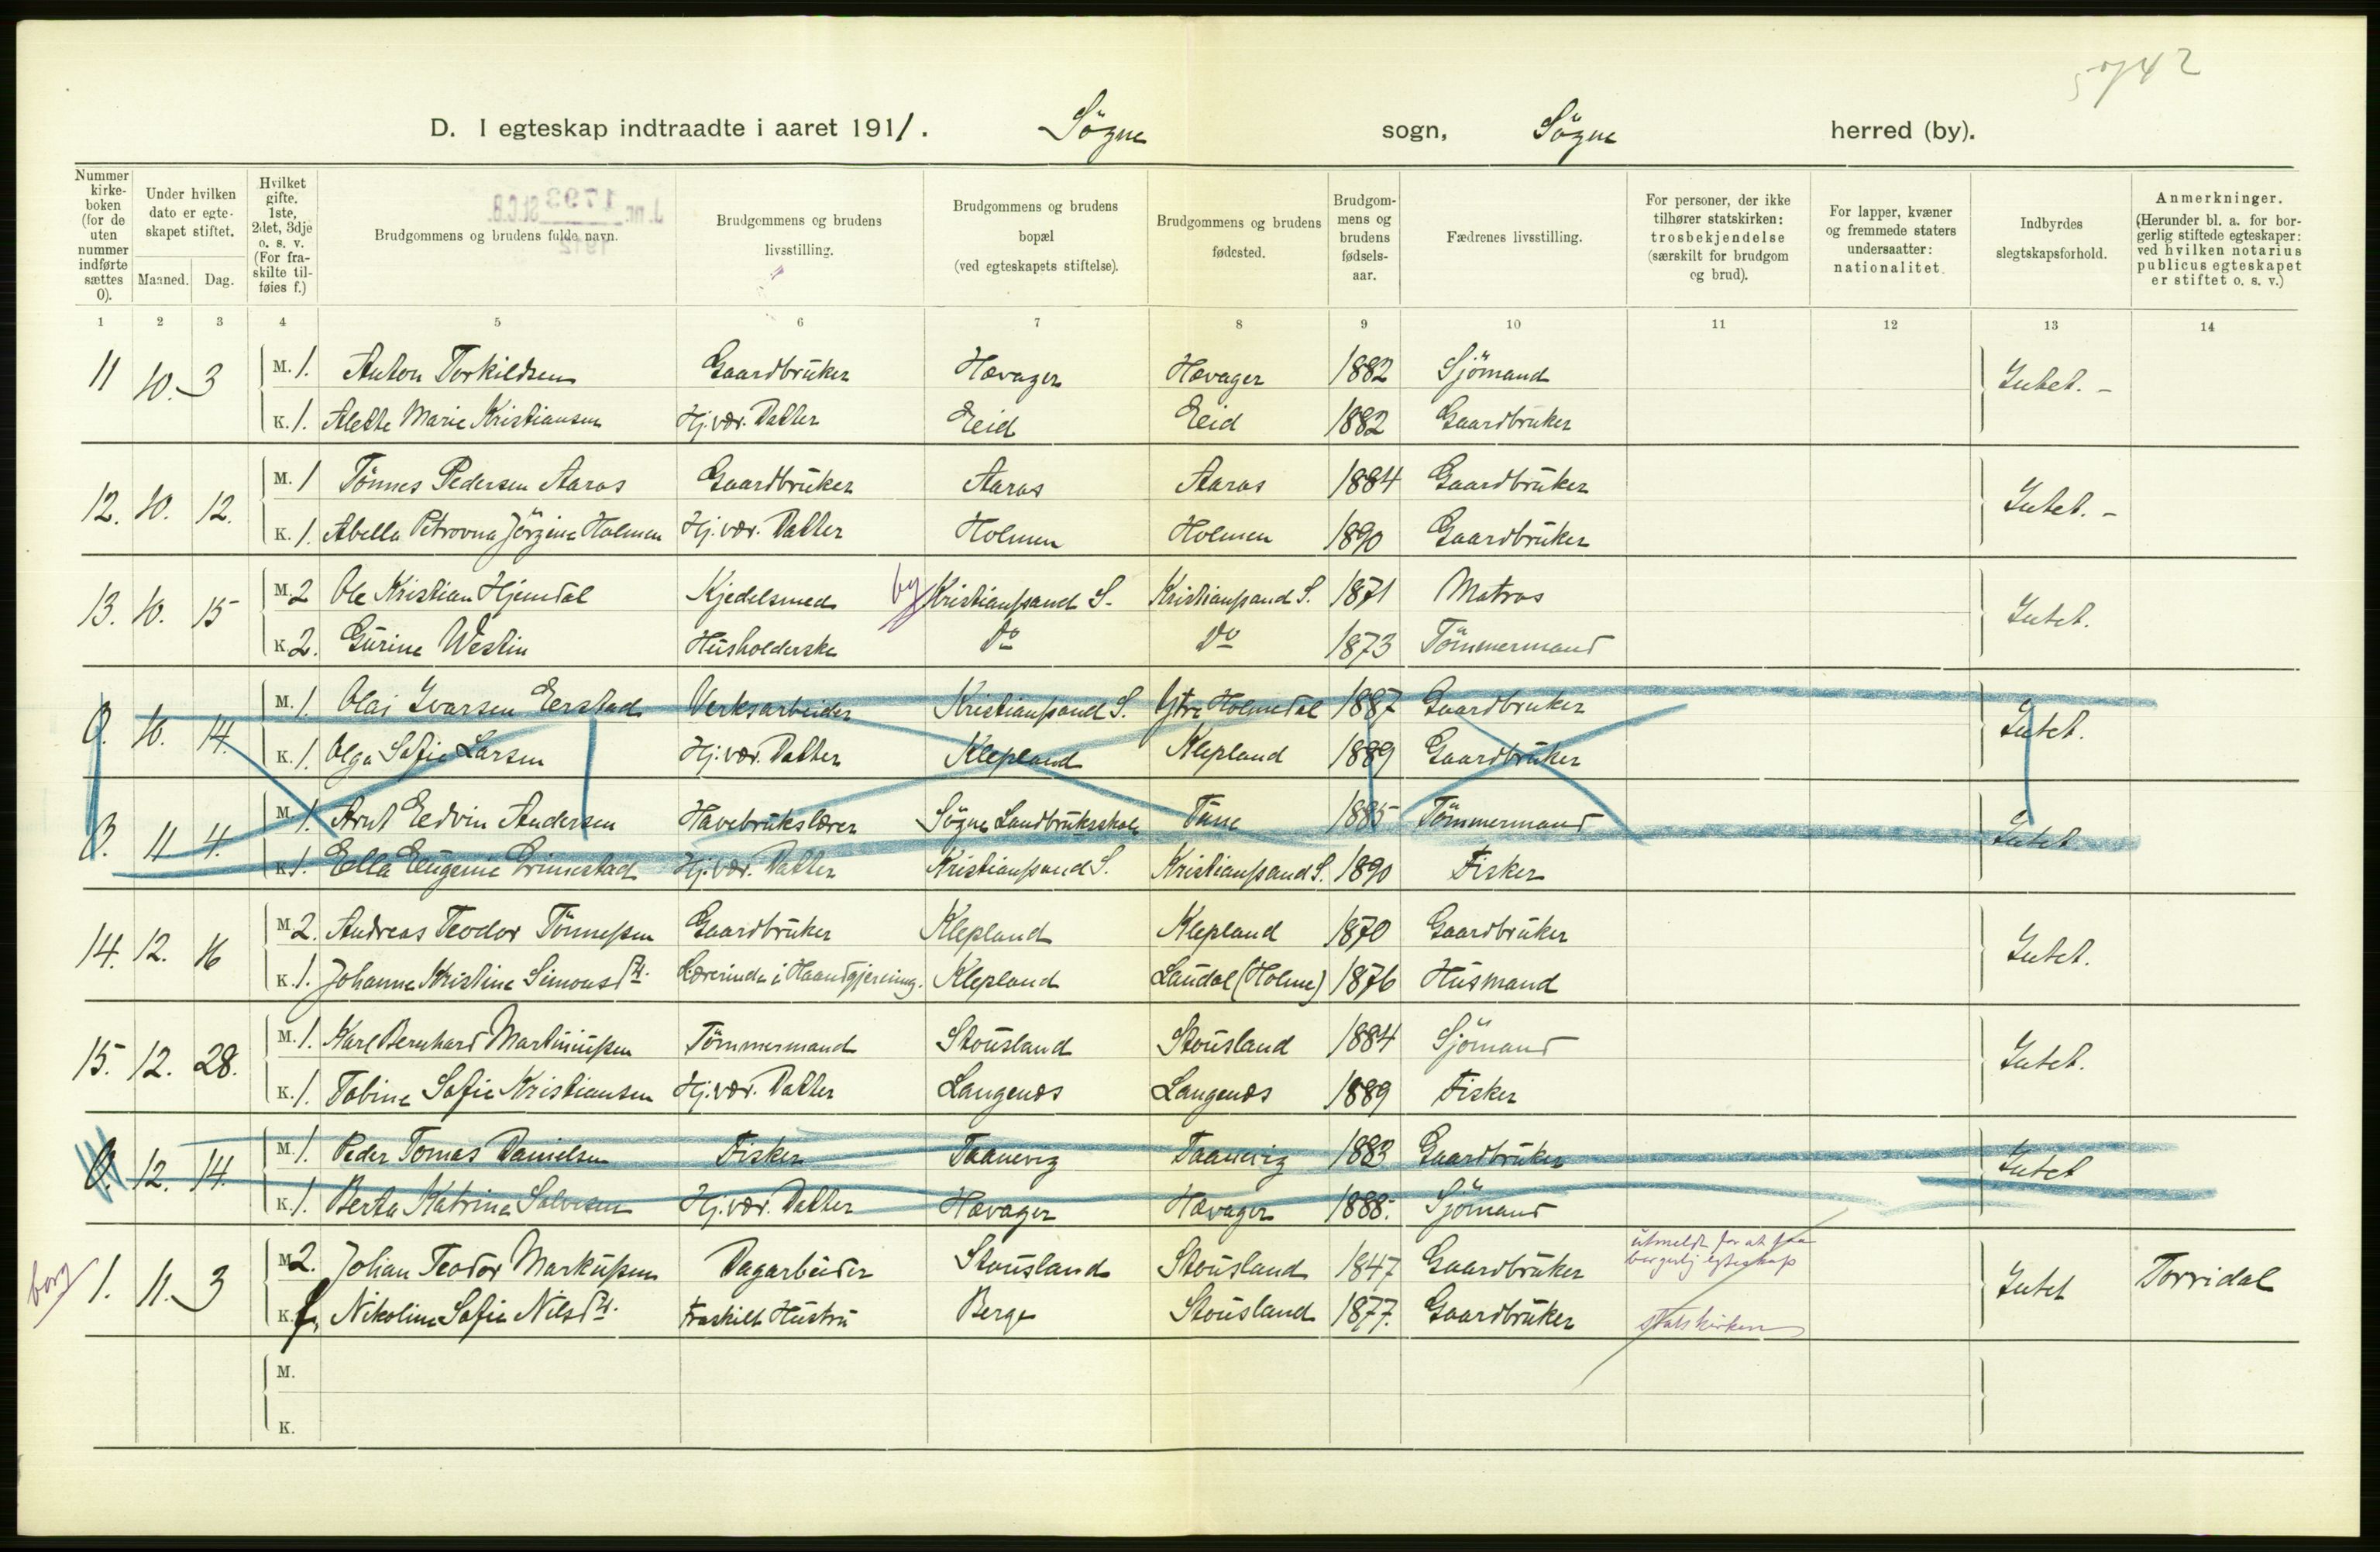 5742
D. I egteskap indtraadte i aaret 1911. Søgne sogn, Søgne herred (by).
J.nr. 1793 St.C.B.
1912
Nummer kirke-boken (for de uten nummer indførte sættes 0).
Under hvilken dato er egte-skapet stiftet.
Maaned. Dag.
Hvilket gifte. 1ste, 2det, 3dje o. s. v. (For fra-skilte til-føies f.)
Brudgommens og brudens fulde navn.
Brudgommens og brudens livsstilling.
Brudgommens og brudens bopæl (ved egteskapets stiftelse).
Brudgommens og brudens fødested.
Brudgom-mens og brudens fødsels-aar.
Fædrenes livsstilling.
For personer, der ikke tilhører statskirken: trosbekjendelse (særskilt for brudgom og brud).
For lapper, kvæner og fremmede staters undersaatter: nationalitet.
Indbyrdes slegtskapsforhold.
Anmerkninger. (Herunder bl. a. for bor-gerlig stiftede egteskaper: ved hvilken notarius publicus egteskapet er stiftet o. s. v.)
1 2 3 4 5 6 7 8 9 10 11 12 13 14
11 10. 3 M. 1. Anton Torkildsen Gaardbruker Høvager Høvager 1882 Sjömand Intet. -
K. 1. Alette Marie Kristiansen Hj. vær. Datter Eeid Eeid 1882 Gaardbruker
12. 10. 12. M. 1 Tönnes Pedersen Aaros Gaardbruker Aaros Aaros 1884 Gaardbruker Intet. -
K. 1. Abella Petrovna Jörgine Holmen Hj. vær. Datter Holmen Holmen 1890 Gaardbruker
13. 10. 15 M. 2 Ole Kristian Hjemdal Kjedelsmed by Kristianssand S. Kristianssand S. 1871 Matros Intet.
K. 2. Gurine Westin Husholderske Do Do 1873 Tömmermand
0. 10. 14. M. 1. Olai Ivarsen Eerstad Verksarbeider Kristianssand S. Ytre Holmedal 1887 Gaardbruker Intet.
K. 1. Olga Sofie Larsen Hj. vær. Datter Klepland Klepland 1889 Gaardbruker
0. 11 4. M. 1. Arnt Eedvin Andersen Havebrukslærer Sögne Landbruksskole Tune 1885 Tömmermand Intet
K. 1. Ella Eugenie Grimestad Hj. vær. Datter Kristianssand S. Kristianssand S. 1890 Fisker
14. 12. 16 M. 2. Andreas Teodor Tönnessen Gaardbruker Klepland Klepland 1870 Gaardbruker Intet.
K. 1. Johanne Kristine Simonsdtr. Lærerinde i Haandgjerning. Klepland Laudal (Holme) 1876 Husmand
15. 12. 28. M. 1. Karl Bernhard Martiniussen Tömmermand Stousland Stousland 1884 Sjömand Intet.
K. 1. Tobine Sofie Kristiansen Hj. vær. Datter Langenes Langenes 1889 Fisker
0. 12. 14. M. 1. Peder Tomas Danielsen Fisker Taanevig Taanevig 1883 Gaardbruker Intet
K. 1. Berta Katrine Salvesen Hj. vær. Datter Høvager Høvager 1888. Sjömand
borg 1. 11. 3 M. 2. Johan Teodor Markussen Dagarbeider Stousland Stousland 1847 Gaardbruker utmeldt for at faa borgerlig egteskap Intet Torridal
K. f. Nikoline Sofie Nilsdtr. Fraskilt Hustru Berge Stousland 1877. Gaardbruker statskirken
M.
K.